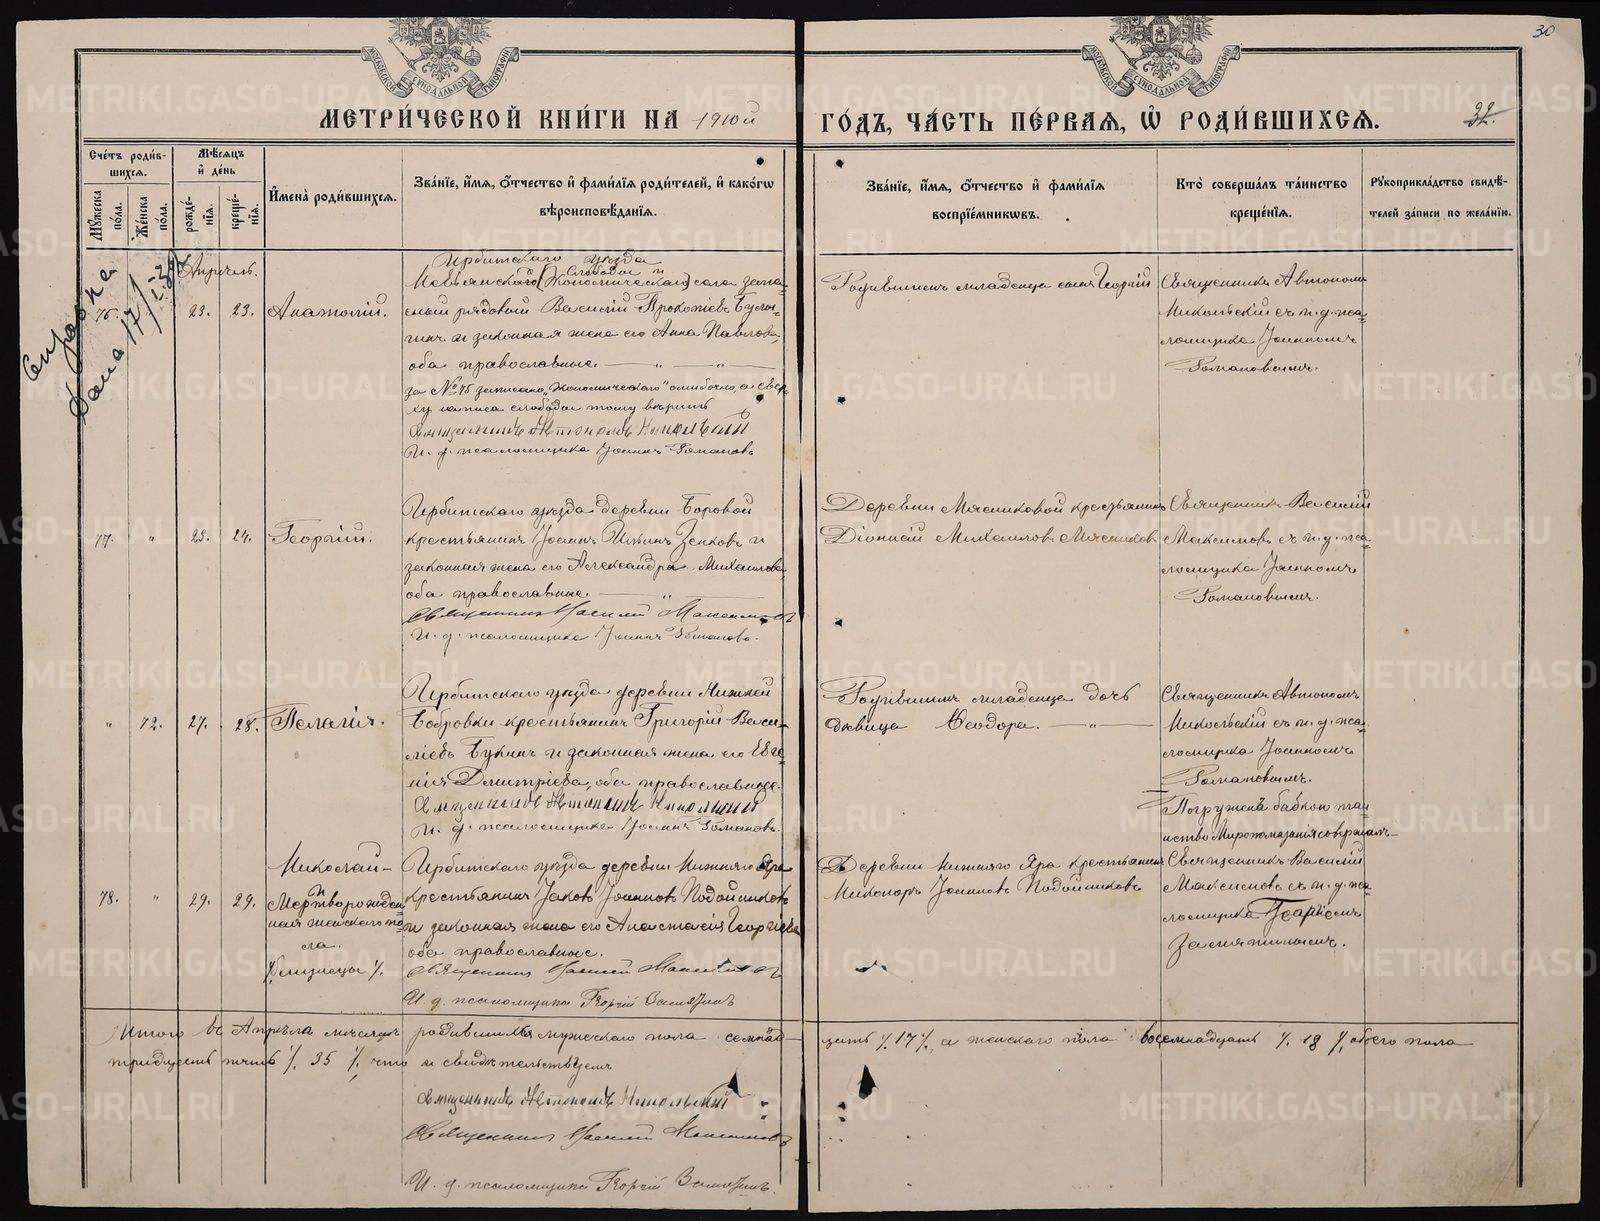 30
МОСКОВСКОЙ СѴНОДАЛЬНОЙ ТИПОГРАФІИ
МОСКОВСКОЙ СѴНОДАЛЬНОЙ ТИПОГРАФІИ
МЕТРИ́ЧЕСКОЙ КНИ́ГИ НА 1910й ГО́ДЪ, ЧА́СТЬ ПЕ́РВАѦ, Ѡ҆ РОДИ́ВШИХСѦ.
32.
Сче́тъ роди́в-
шихсѧ.
Мꙋ́жеска по́ла.
Же́нска по́ла.
Мѣ́сѧцъ
и҆ де́нь
рожде́-
нїѧ.
креще́-
нїѧ.
И҆мена̀ роди́вшихсѧ.
Зва́нїе, и҆́мѧ, ѻ҆́тчество и҆ фами́лїѧ роди́телей, и҆ како́гѡ
вѣроисповѣ́данїѧ.
Зва́нїе, и҆́мѧ, ѻ҆́тчество и҆ фами́лїѧ
воспрїе́мникѡвъ.
Кто̀ соверша́лъ та́инство
креще́нїѧ.
Рꙋкоприкла́дство свидѣ́-
телей за́писи по жела́нїю.
Справка
дана 17/I
Апрель.
76.
23. 23. Анатолій.
Ирбитскаго уѣзда
Слободы и
Невьянскаго (Экономическаго) села запа-
сный рядовой Василій Прокопіевъ
и законная жена его Анна Павлова,
оба православные. — „ — „ —
за № 76 записано „Экономическаго" ошибочно, а свер-
ху написа слободы тому вѣрить
Священникъ Автономъ Никольскій
И. д. псаломщика Іоаннъ Романовъ
Родившимъ младенца сынъ Георгій
Священникъ Автономъ
Никольскій съ и. д. пса-
ломщика Іоанномъ
Романовымъ.
77. „ 23. 24. Георгій.
Ирбитскаго уѣзда деревни Боровой
крестьянинъ Іоаннъ Ильинъ Зенковъ и
законная жена его Александра Михаилова,
оба православные. — „ —
Священникъ Василій Максимовъ
И. д. псаломщика Іоаннъ Романовъ.
Деревни Мясниковой крестьянинъ
Діонисій Михаиловъ Мясниковъ
Священникъ Василій
Максимовъ съ и. д. пса-
ломщика Іоанномъ
Романовымъ.
„ 72. 27. 28. Пелагія.
Ирбитскаго уѣзда деревни Нижней
Бобровки крестьянинъ Григорій Васи-
ліевъ Букинъ и законная жена его Евге-
нія Димитріева, оба православные.
Священникъ Автономъ Никольскій
И. д. псаломщика Іоаннъ Романовъ.
Родившимъ младенца дочь
дѣвица Ѳеодора. — „ —
Священникъ Автономъ
Никольскій съ и. д. пса-
ломщика Іоанномъ
Романовымъ.
Погружена бабкою таи
нство Миропомазанія совершалъ
78. „ 29. 29.
Николай -
и
Мертворожден-
ная женскаго по-
ла.
/близнецы/.
Ирбитскаго уѣзда деревни Нижняго Яра
крестьянинъ Іаковъ Іоанновъ Подойниковъ
и законная жена его Анастасія Георгіева
оба православные.
Священникъ Василій Максимовъ
И. д. псаломщика Георгій Замятинъ
Деревни Нижняго Яра крестьянинъ
Никаноръ Іоанновъ Подойниковъ
Священникъ Василій
Максимовъ съ и. д. пса-
ломщика Георгіемъ
Замятинымъ.
Итого въ Апрѣлѣ мѣсяцѣ родившихся мужескаго пола семнад- цать /. 17 /., а женскаго пола восемнадцать /. 18 /, обоего пола
тридцать пять /. 35 /, что и свидѣтельствуемъ
Священникъ Автономъ Никольскій
Священникъ Василій Максимовъ
И. д. псаломщика Георгій Замятинъ.
METRIKI.GASO-URAL.RU